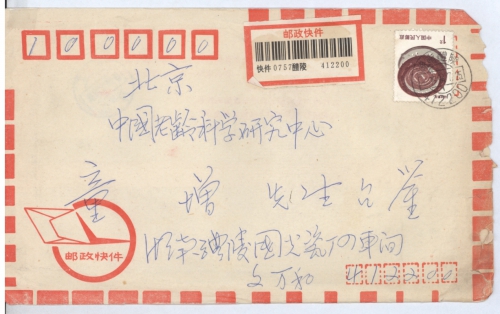 100000
邮政快件
快件 0757醴陵 412200
中国人民邮政
北京
中国老龄科学研究中心
童增 先生 台鉴
湖南醴陵國光瓷厂
邮政快件
文万和
412200